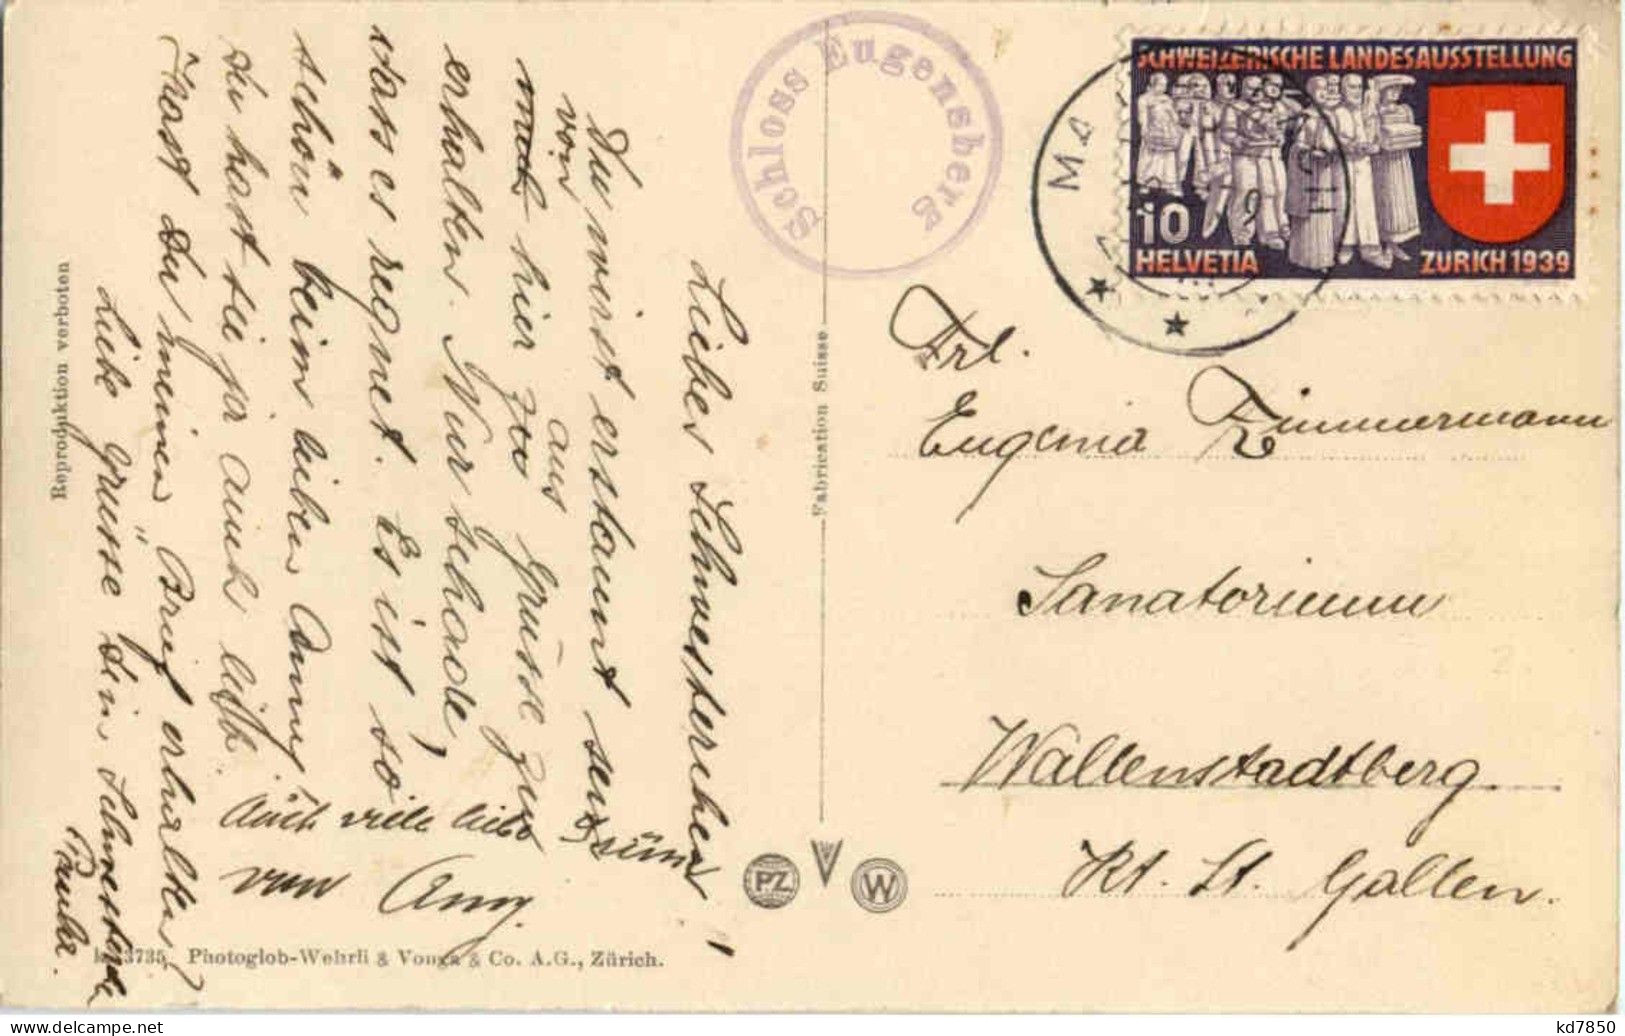 Liebes Schwesterchen!
Du wirst erstaunt sein
von hier zu Grüsse zu
aus
erhalten. Nur schade,
dass es regnet. Es ist so
schön beim lieben Anny,
Du hast sie ja auch lieb.
Hast Du meinen Brief erhalten
Liebe Grüsse Dein Schwesterchen
Paula.
Auch viele liebe Grüsse
von Anny.
Schloss Eugensberg
SCHWEIZERISCHE LANDESAUSSTELLUNG
10
HELVETIA
ZURICH 1939
Frl.
Eugenia Zimmermann
Sanatorium
Wallenstadtberg.
Kt. St. Gallen.
Reproduktion verboten
Fabrication Suisse
PZ
V
W
3735 Photoglob-Wehrli & Vouga & Co. A.G., Zürich.
kd7850